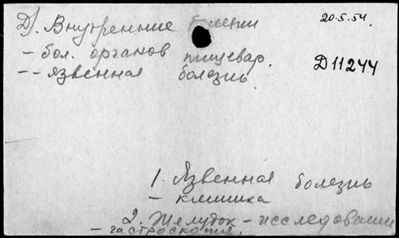 Д). Внутренние болезни
20.5.54.
- бол. органов пищевар.
Д11244
-- язвенная болезнь.
1. Язвенная болезнь
- клиника
2. Желудок - исследование
- гастроскопия.